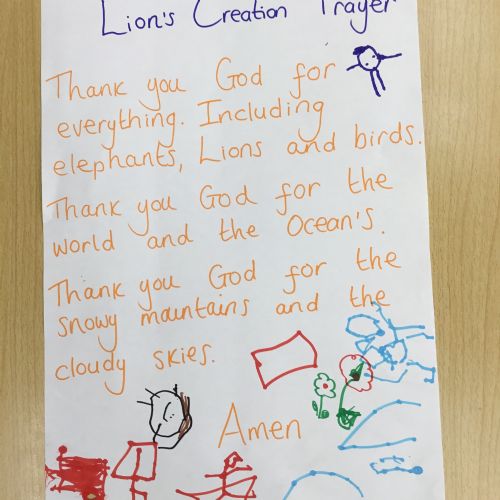 Lion's Creation Prayer
Thank you God for
everything. Including
elephants, Lions and birds.
Thank you God for the
world and the Ocean's.
Thank you God for the
snowy mauntains and the
cloudy skies.
Amen